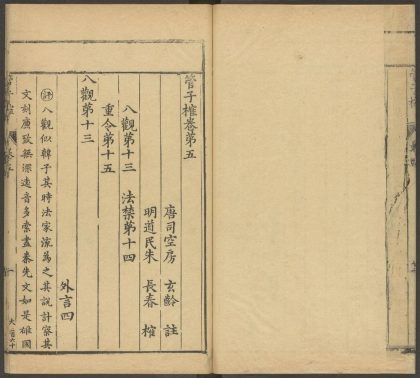 管子榷卷第五
唐司空房　玄齡　註
明道民朱　長春　榷
八觀第十三　法禁第十四
重令第十五
八觀第十三
外言四
評八觀似韓子其時法家流為之其說計察其
文刻廣致無深遠音多索盡秦先文如是雄國